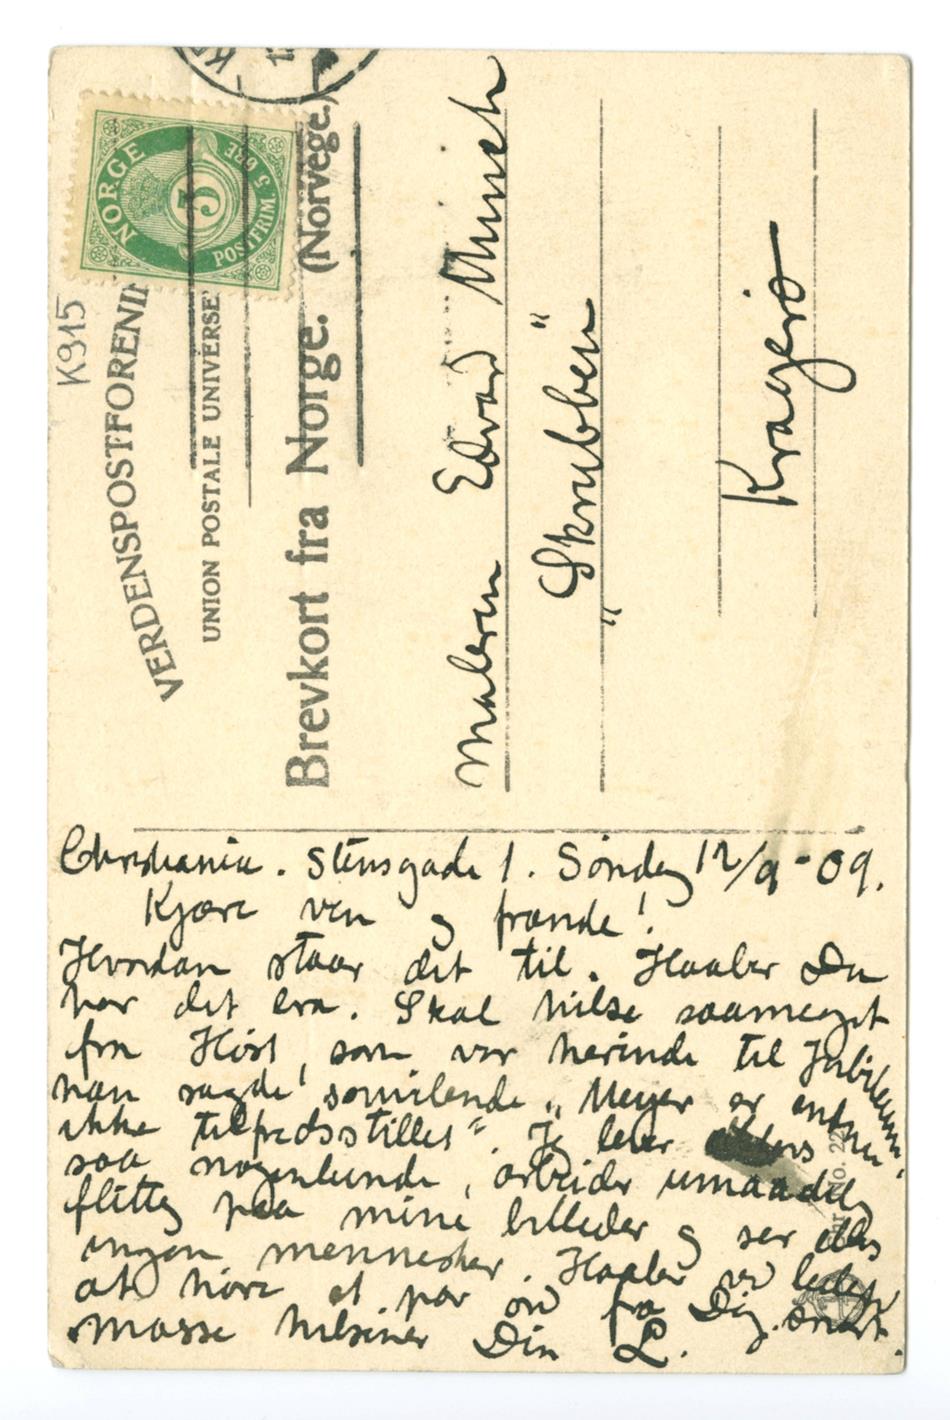 K915
NORGE
5
POSTFRIM. 5 ØRE
VERDENSPOSTFORENIN
UNION POSTALE UNIVERSE
Brevkort fra Norge. (Norvege.)
Maleren Edvard Munch
"Skrubben"
Kragerø
Christiania. Stensgade 1. Søndag 12/9-09.
Kjære ven og frænde!
Hvordan staar det til. Haaber Du
har det bra. Skal hilse saameget
fra Høst, som var herinde til Jubilæum,
han sagde smilende "Meyer er endnu
ikke tilfredsstillet". Jeg lever
saa nogenlunde, arbeider umaadelig
flittig paa mine billeder og ser ellers
ingen mennesker. Haaber ved leilighed
at høre et par ord fra Dig snart.
masse hilsener Din L.
No. 22